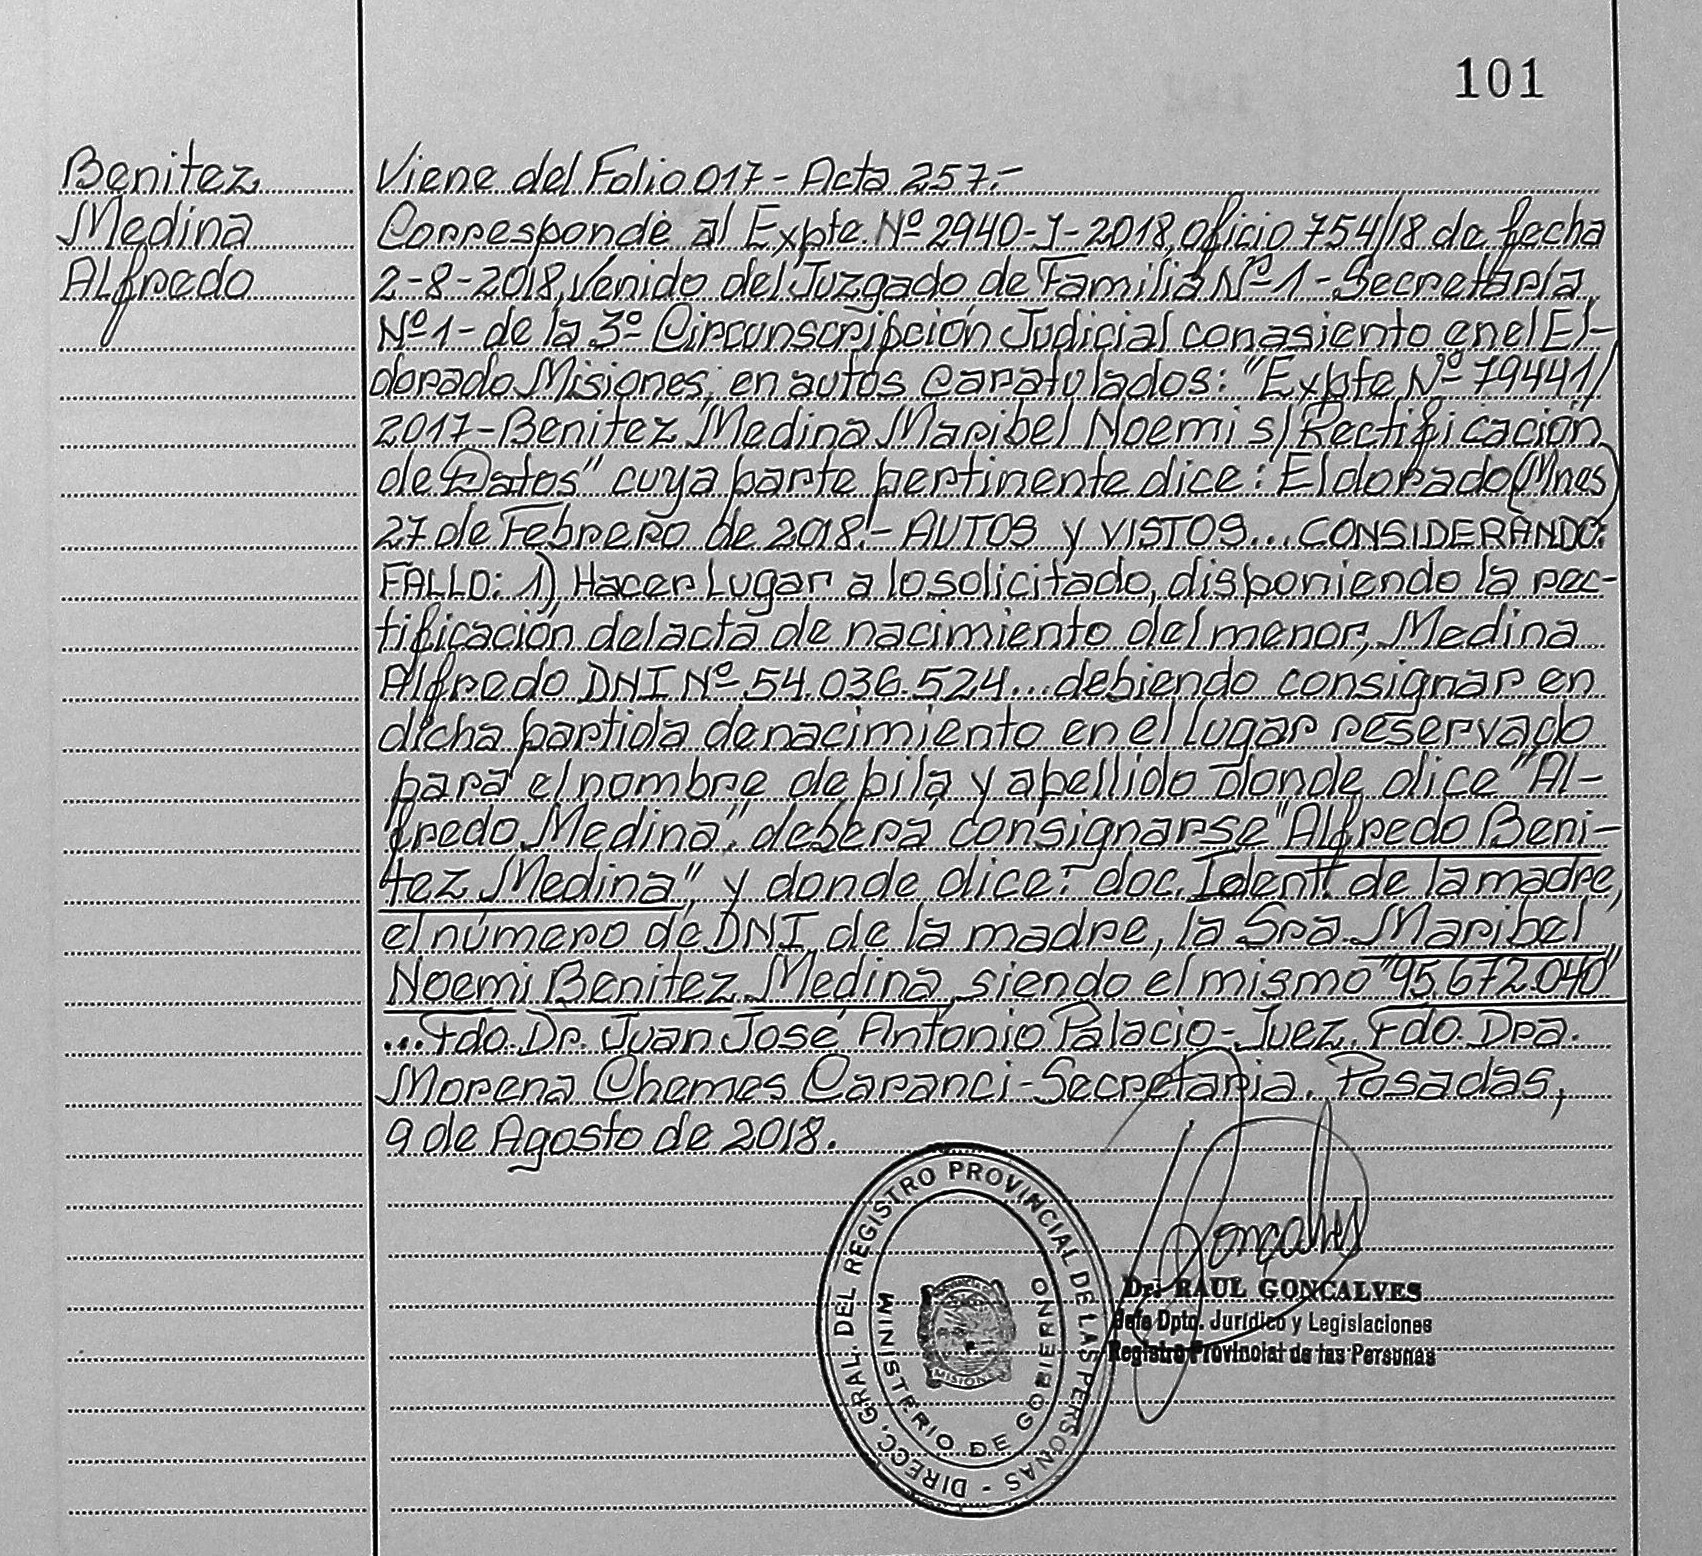 101
Benitez
Medina
Alfredo
Viene del Folio 017- Acta 257.-
Corresponde al Expte. Nº 2940-J-2018, oficio 754/18 de fecha
2-8-2018, Venido del Juzgado de Familia Nº 1 - Secretaría
Nº 1- de la 3º Circunscripción Judicial con asiento en el El-
dorado Misiones; en autos caratulados: "Expte Nº 79441/
2017-Benitez Medina Maribel Noemi s/Rectificación
de Datos" cuya parte pertinente dice: Eldorado (Mnes)
27 de Febrero de 2018.- AUTOS y VISTOS... CONSIDERANDO:
FALLO: 1) Hacer Lugar a lo solicitado, disponiendo la rec-
tificación del acta de nacimiento del menor, Medina
Alfredo DNI Nº 54.036.524... debiendo consignar en
dicha partida de nacimiento en el lugar reservado
para el nombre de pila y apellido donde dice "Al-
fredo Medina". deberá consignarse "Alfredo Beni-
tez Medina", y donde dice: doc. Ident. de la madre,
el número de DNI de la madre, la Sra. Maribel
Noemi Benitez Medina siendo el mismo "95.672.040"
... Fdo. Dr. Juan José Antonio Palacio-Juez. Fdo. Dra.
Morena Chemes Caranci-Secretaria. Posadas,
9 de Agosto de 2018.
DIRECC. GRAL. DEL REGISTRO PROVINCIAL DE LAS PERSONAS -
MINISTERIO DE GOBIERNO
MISIONES
Gonçalves
Dr. RAUL GONCALVES
Jefe Dpto. Jurídico y Legislaciones
Registro Provincial de las Personas